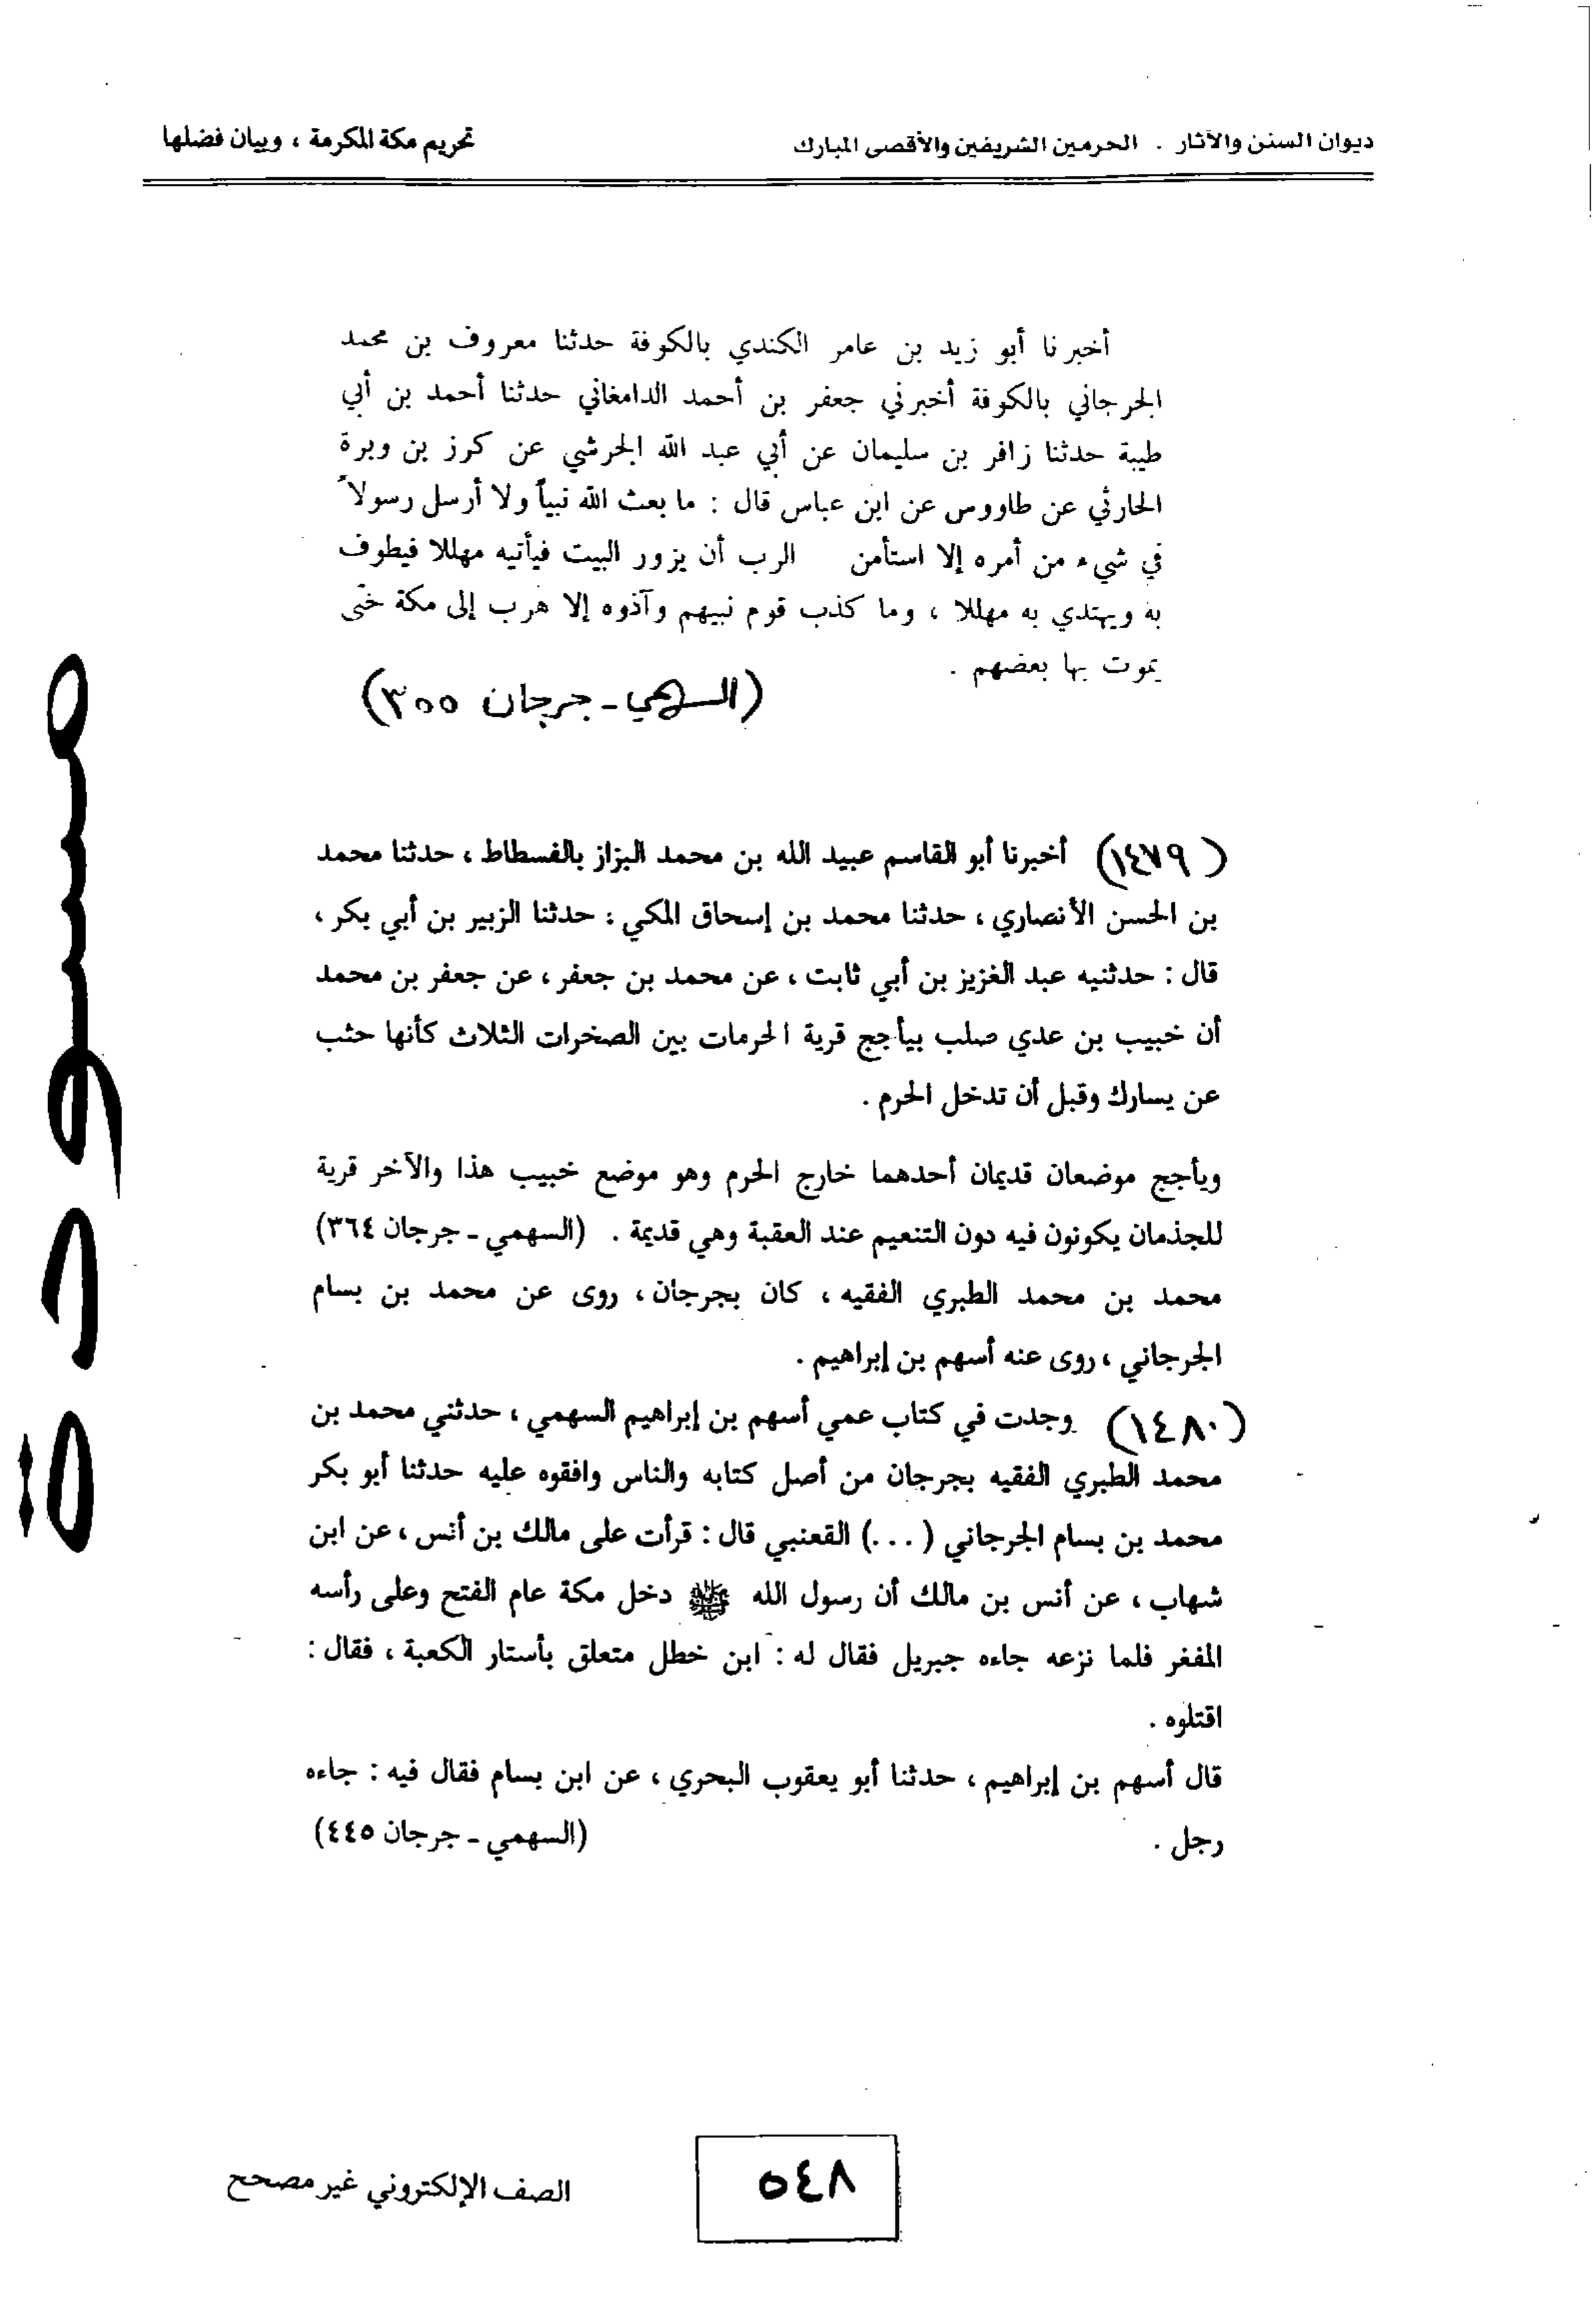 ديوان السنن والآثار . الحرمين الشريفين والأقصى المبارك
تحريم مكة المكرمة ، وبيان فضلها
أخبرنا أبو زيد بن عامر الكندي بالكوفة حدثنا معروف بن محمد
الجرجاني بالكوفة أخبرني جعفر بن أحمد الدامغاني حدثنا أحمد بن أبي
طيبة حدثنا زافر بن سليمان عن أبي عبد الله الجرشي عن كرز بن وبرة
الحارثي عن طاووس عن ابن عباس قال : ما بعث الله نبياً ولا أرسل رسولاً
في شيء من أمره إلا استأمن الرب أن يزور البيت فيأتيه مهللا فيطوف
به ويهتدي به مهللا ، وما كذب قوم نبيهم وآذوه إلا هرب إلى مكة حتى
يموت بها بعضهم .
(السهمي - جرجان ٣٥٥)
(١٤٧٩) أخبرنا أبو القاسم عبيد الله بن محمد البزاز بالفسطاط ، حدثنا محمد
بن الحسن الأنصاري ، حدثنا محمد بن إسحاق المكي : حدثنا الزبير بن أبي بكر ،
قال : حدثنيه عبد الغزيز بن أبي ثابت ، عن محمد بن جعفر ، عن جعفر بن محمد
أن خبيب بن عدي صلب بيأجج قرية الحرمات بين الصخرات الثلاث كأنها حثب
عن يسارك وقبل أن تدخل الحرم .
ويأجج موضعان قديمان أحدهما خارج الحرم وهو موضع خبيب هذا والآخر قرية
للجذمان يكونون فيه دون التنعيم عند العقبة وهي قديمة . (السهمي - جرجان ٣٦٤)
محمد بن محمد الطبري الفقيه ، كان بجرجان ، روى عن محمد بن بسام
الجرجاني ، روى عنه أسهم بن إبراهيم .
(١٤٨٠) وجدت في كتاب عمي أسهم بن إبراهيم السهمي ، حدثني محمد بن
محمد الطبري الفقيه بجرجان من أصل كتابه والناس وافقوه عليه حدثنا أبو بكر
محمد بن بسام الجرجاني (...) القعنبي قال : قرأت على مالك بن أنس ، عن ابن
شهاب ، عن أنس بن مالك أن رسول الله ﷺ دخل مكة عام الفتح وعلى رأسه
المغفر فلما نزعه جاءه جبريل فقال له : ابن خطل متعلق بأستار الكعبة ، فقال :
اقتلوه .
قال أسهم بن إبراهيم ، حدثنا أبو يعقوب البحري ، عن ابن بسام فقال فيه : جاءه
رجل . (السهمي - جرجان ٤٤٥)
٥٤٨
الصف الإلكتروني غير مصحح
مسودة